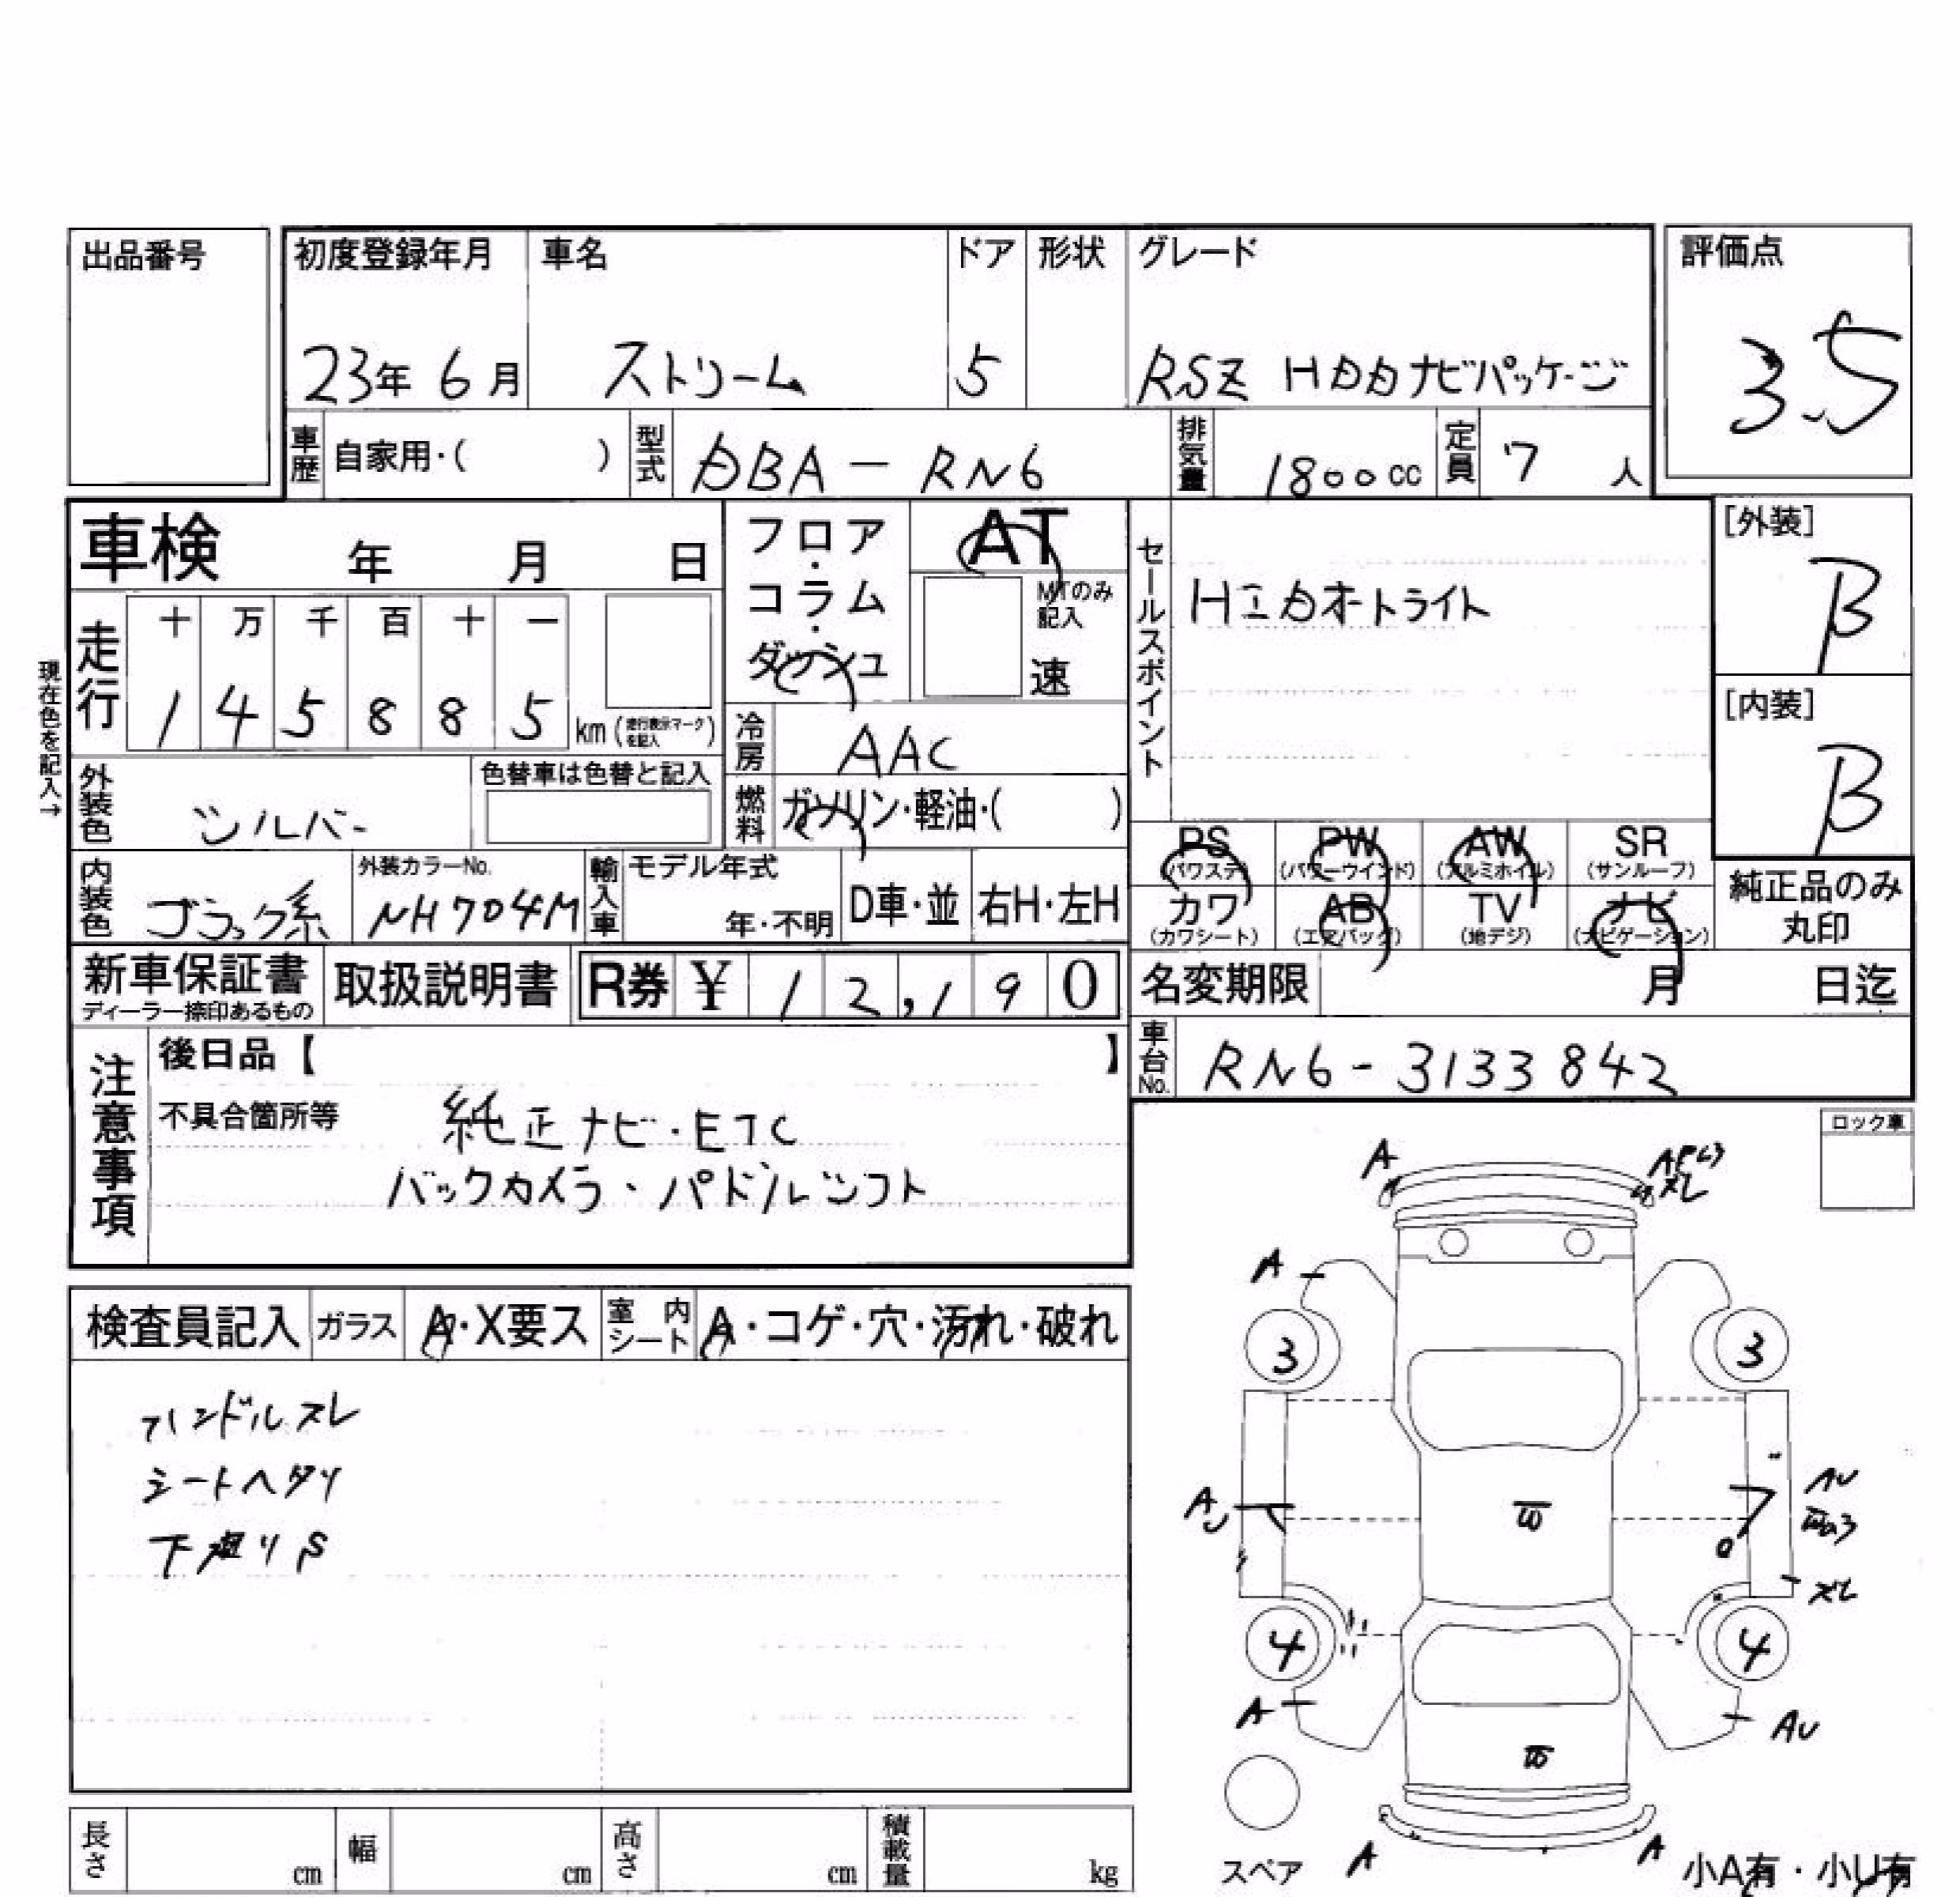 出品番号
初度登録年月 車名 ドア 形状 グレード 評価点
23年 6月 ストリーム 5 RSZ HDDナビパッケージ 3.5
車歴 自家用・( ) 型式 DBA-RN6 排気量 1800cc 定員 7人
車検 年 月 日
フロア・コラム・ダッシュ
AT
MTのみ記入
速
セールスポイント
HIDオートライト
[外装]
B
[内装]
B
現在色を記入→
走行 十 万 千 百 十 一
1 4 5 8 8 5 km (走行表示マークを記入)
冷房 AAC
外装色 シルバー
色替車は色替と記入
燃料 ガソリン・軽油・( )
PS (パワステ) PW (パワーウインド) AW (アルミホイル) SR (サンルーフ)
カワ (カワシート) AB (エアバッグ) TV (地デジ) ナビ (ナビゲーション)
純正品のみ
丸印
内装色 ブラック系
外装カラーNo.
NH704M
輸入車 モデル年式
年・不明
D車・並 右H・左H
新車保証書
ディーラー捺印あるもの
取扱説明書
R券 ¥ 12,190
名変期限 月 日迄
車台No. RN6-3133842
注意事項
後日品【 】
不具合箇所等
純正ナビ・ETC
バックカメラ・パドルシフト
ロック車
検査員記入 ガラス A・X要ス 室内シート A・コゲ・穴・汚れ・破れ
ハンドルスレ
シートヘタリ
下廻りS
A
A
3 3
A
AU
スレ
4 4
A
AU
スペア
A
A
小A有・小U有
長さ cm 幅 cm 高さ cm 積載量 kg